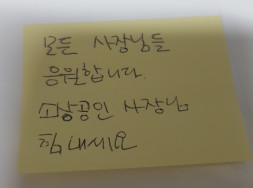 모든 사장님들
응원합니다.
소상공인 사장님
힘내세요